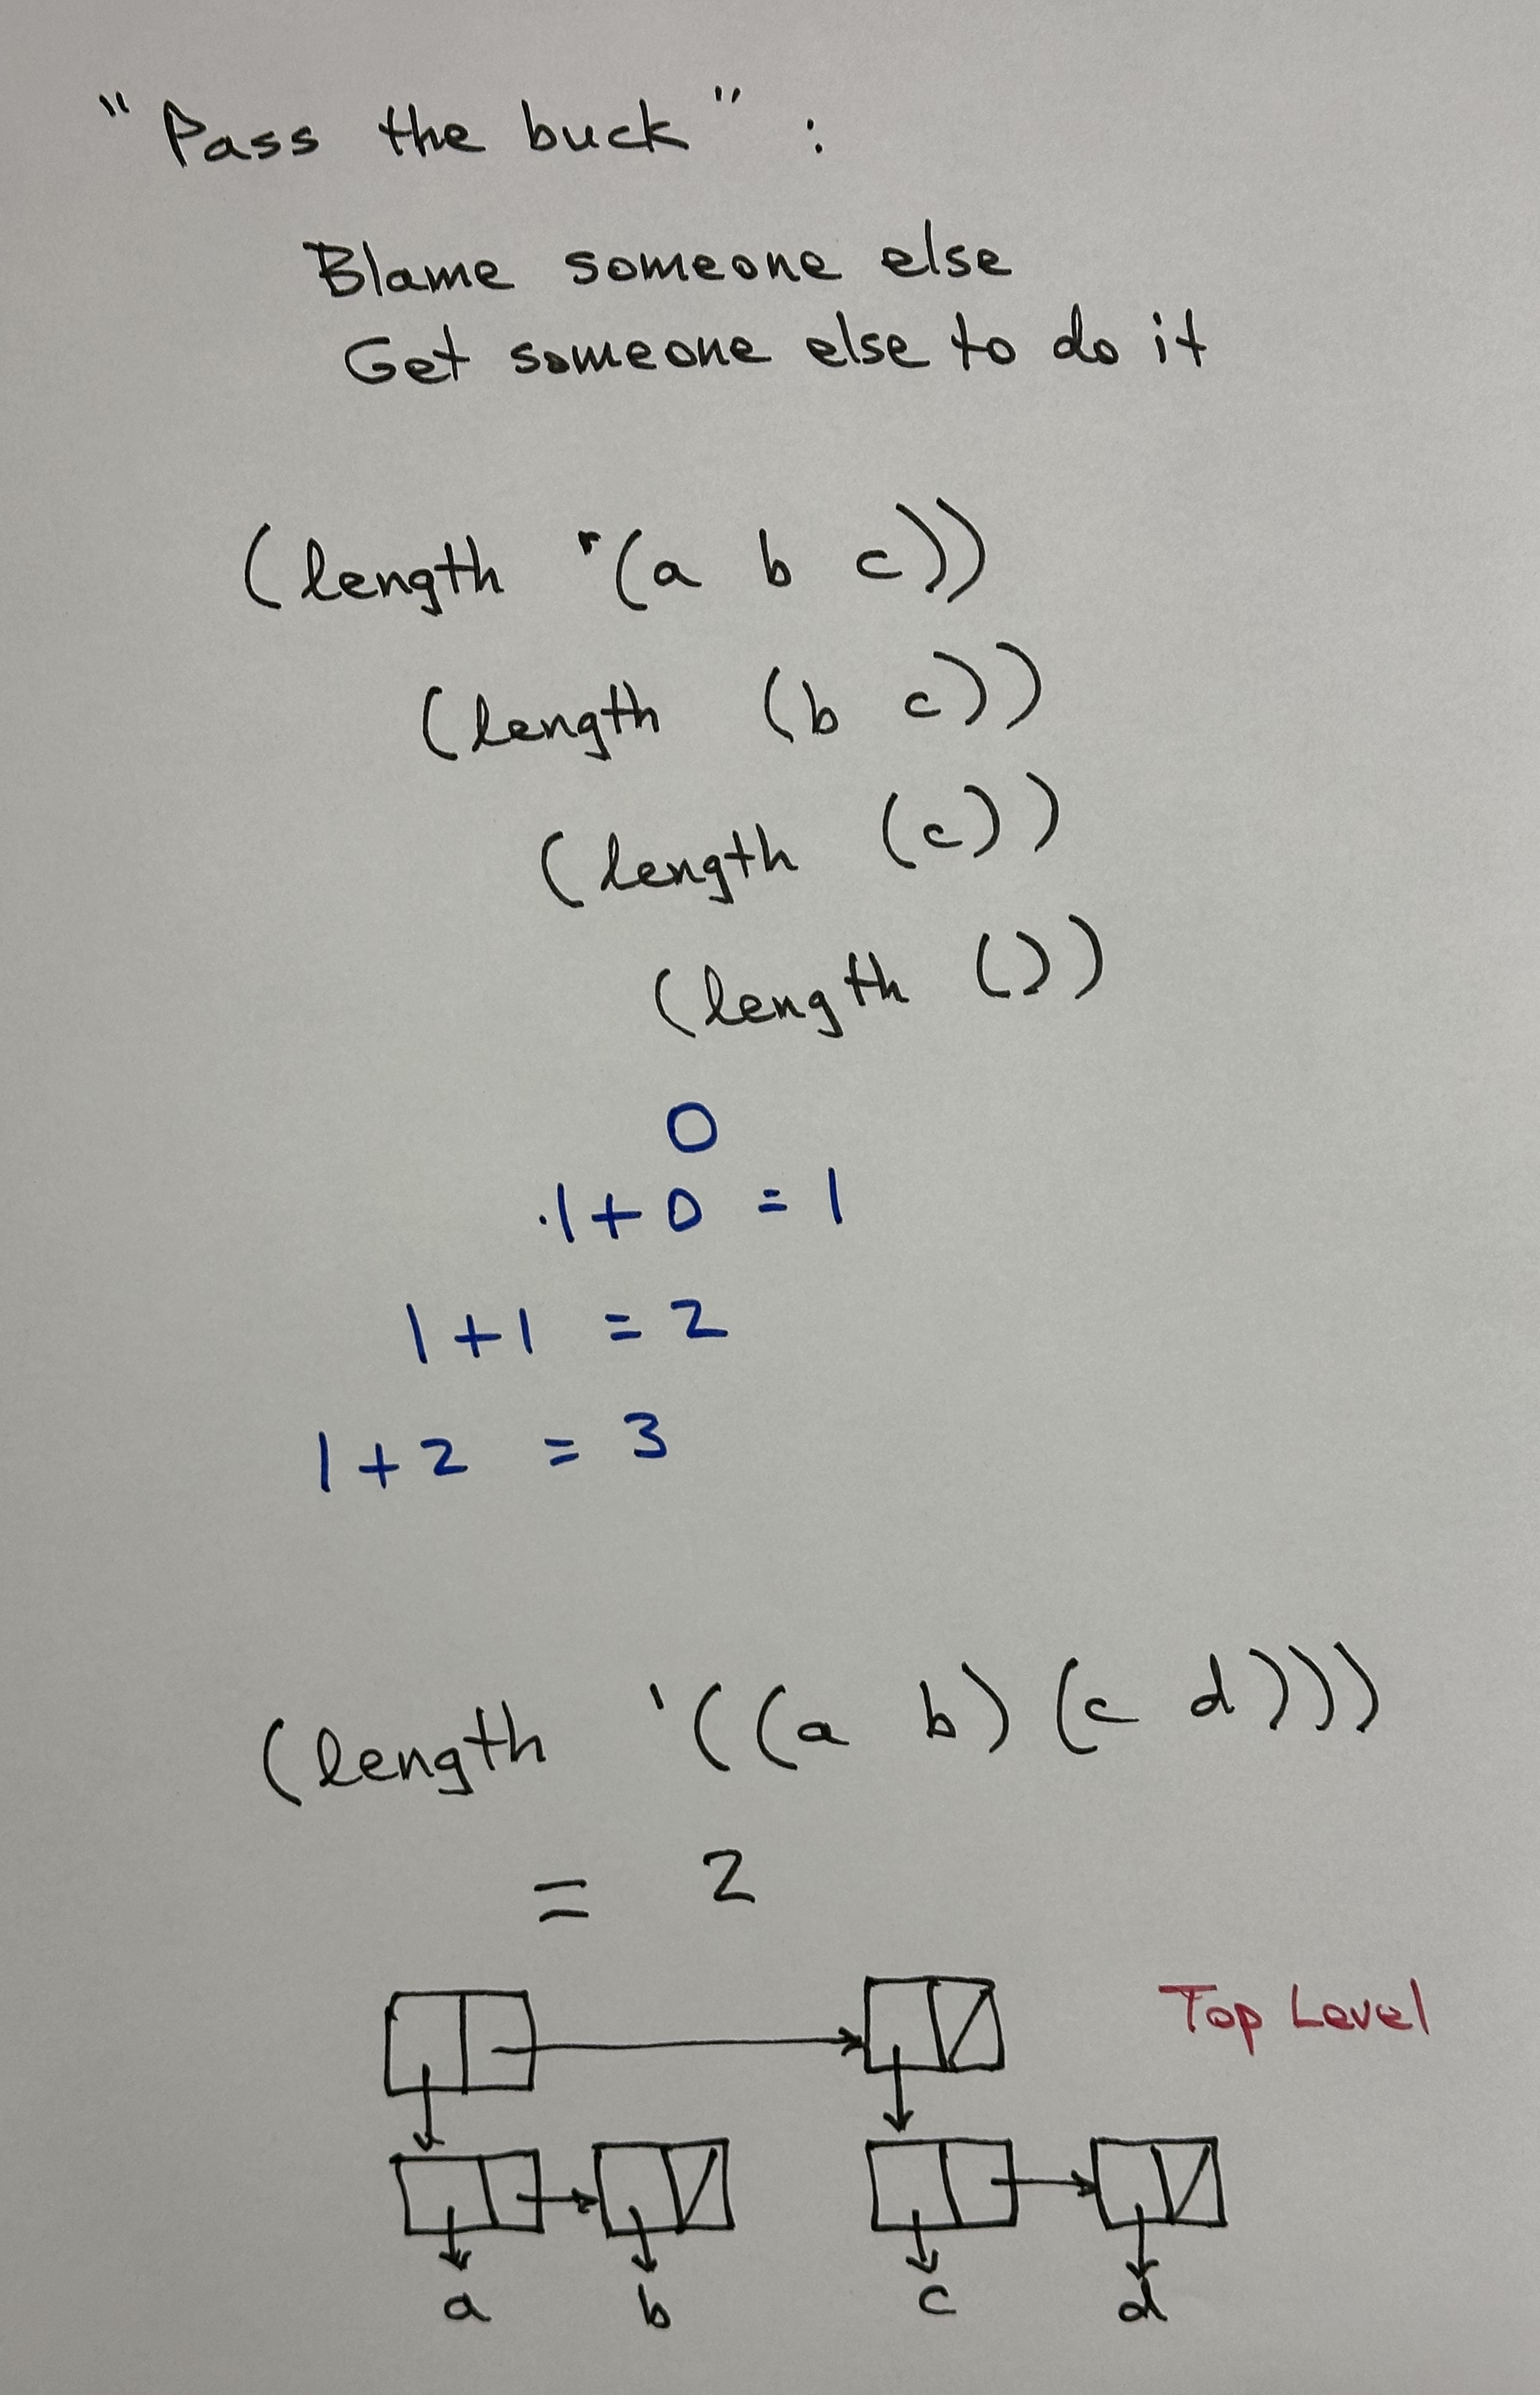 "Pass the buck":
Blame someone else
Get someone else to do it
(length '(a b c))
(length (b c))
(length (c))
(length ())
0
1+0 = 1
1+1 = 2
1+2 = 3
(length '((a b) (c d)))
= 2
Top Level
a b c d